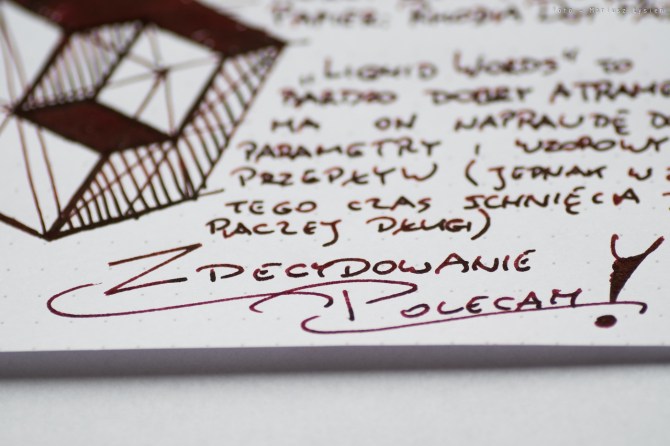 PAPIER:
„LIQUID WORDS" TO
BARDZO DOBRY ATRAME
MA ON NAPRAWDĘ D
PARAMETRY I WZOROWY
PRZEPŁYW (JEDNAK W Z
TEGO CZAS SCHNIĘCIA
RACZEJ DŁUGI)
ZDECYDOWANIE
POLECAM!